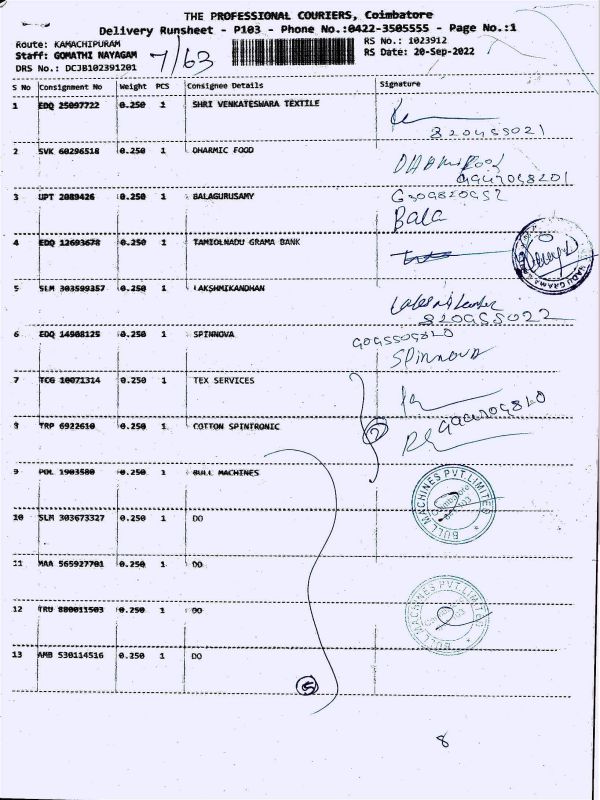 THE PROFESSIONAL COURIERS, Coimbatore
Delivery Runsheet - P103 - Phone No.:0422-3505555 - Page No.:1
Route: KAMACHIPURAM
RS No.: 1023912
Staff: GOMATHI NAYAGAM
7/63
RS Date: 20-Sep-2022
DRS No.: DCJB102391201
S No Consignment No Weight PCS Consignee Details Signature
1 EDQ 25097722 0.250 1 SHRI VENKATESWARA TEXTILE
820455021
2 SVK 60296518 0.250 1 DHARMIC FOOD
3 UPT 2089426 0.250 1 BALAGURUSAMY
Bala
4 EDQ 12693678 0.250 1 TAMIOLNADU GRAMA BANK
5 SLM 303599357 0.250 1 LAKSHMIKANDHAN
820455022
6 EDQ 14908125 0.250 1 SPINNOVA
Spinnova
7 TCG 10071314 0.250 1 TEX SERVICES
8 TRP 6922610 0.250 1 COTTON SPINTRONIC
2
9 POL 1903580 0.250 1 BULL MACHINES
BULL MACHINES PVT LIMITED
10 SLM 303673327 0.250 1 DO
11 MAA 565927701 0.250 1 DO
12 TRU 800011503 0.250 1 DO
BULL MACHINES PVT LIMITED
13 AMB 530114516 0.250 1 DO
5
8